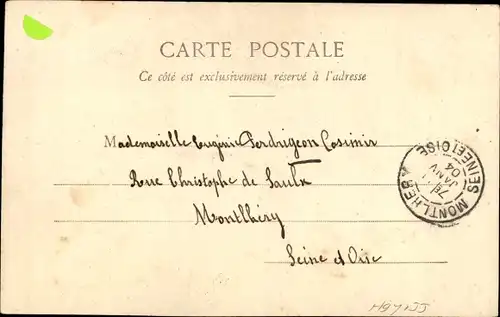 CARTE POSTALE
Ce côté est exclusivement réservé à l'adresse
Mademoiselle Eugénie Perdrigeon Casimir
Rue Christophe de Saulx
Montlhéry
Seine et Oise
MONTLHERY
SEINE ET OISE
7
JANV
04